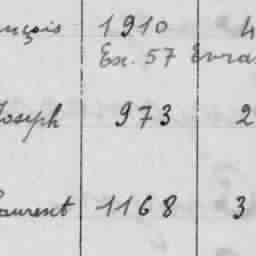 ançois 1910 4
Ex. 57 Evra
Joseph 973 2
Laurent 1168 3